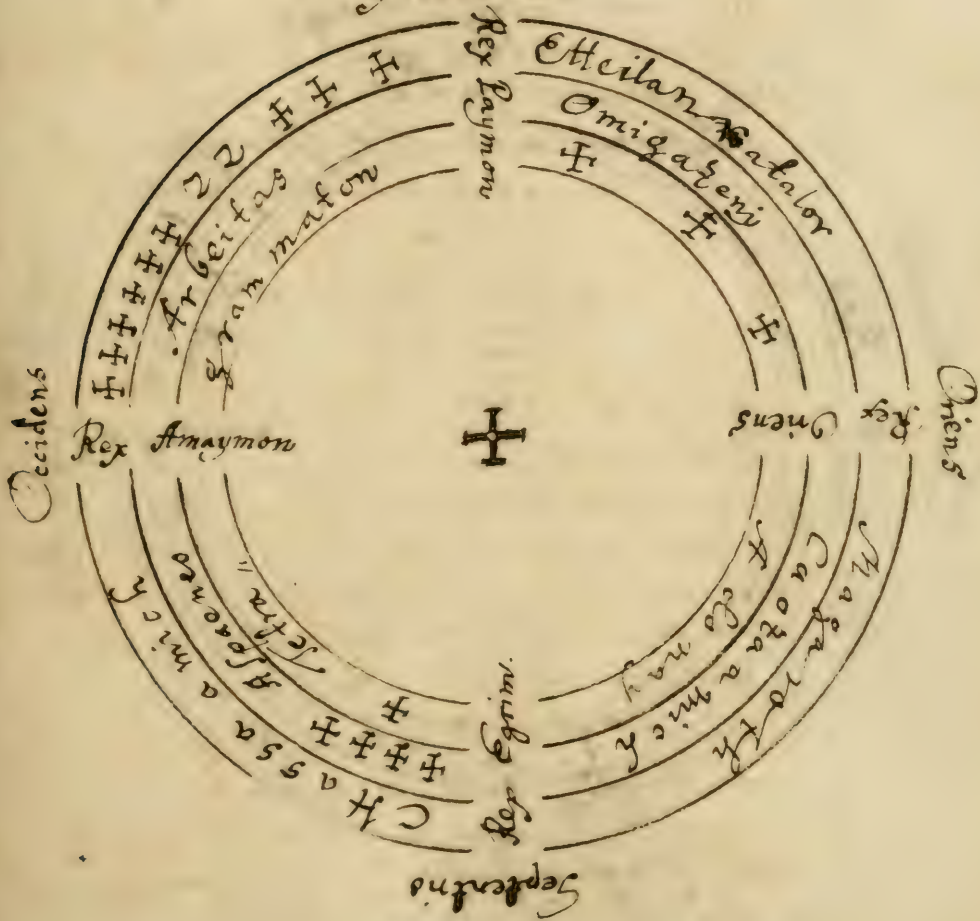 Rex Paymon
Etteilan
Omigarens
Oriens
Rex
Oriens
Mazaroth
Caozaamich
Adonay
Septentrio
Rex
Egim
CHassaamich
Aspaeneo
Tetra"
Occidens
Rex
Amaymon
.Arbeitas
gram maton
22